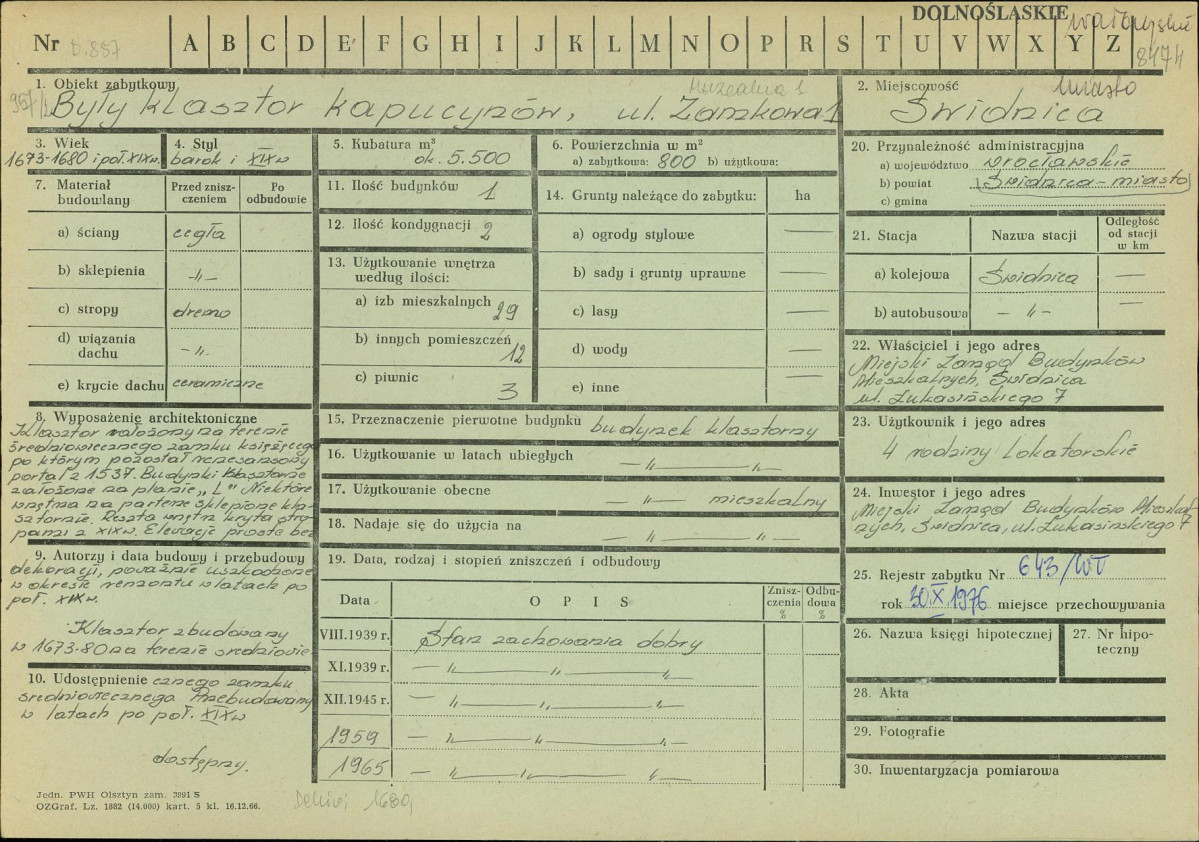 DOLNOŚLĄSKIE
Nr D.837 A B C D E F G H I J K L M N O P R S T U V W X Y Z
8474
1. Obiekt zabytkowy
Muzealna 1
Były klasztor kapucynów, ul. Zamkowa 1
2. Miejscowość
miasto
Świdnica
3. Wiek
1673-1680 i poł. XIX w.
4. Styl
barok i XIX w
5. Kubatura m³
ok. 5.500
6. Powierzchnia w m²
a) zabytkowa: 800 b) użytkowa:
20. Przynależność administracyjna
a) województwo wrocławskie
b) powiat (Świdnica-miasto)
c) gmina
7. Materiał budowlany
Przed zniszczeniem
Po odbudowie
a) ściany cegła
b) sklepienia -"-
c) stropy drewno
d) wiązania dachu -"-
e) krycie dachu ceramiczne
11. Ilość budynków 1
12. Ilość kondygnacji 2
13. Użytkowanie wnętrza
według ilości:
a) izb mieszkalnych 29
b) innych pomieszczeń 12
c) piwnic 3
14. Grunty należące do zabytku: ha
a) ogrody stylowe —
b) sady i grunty uprawne —
c) lasy —
d) wody —
e) inne —
21. Stacja
Nazwa stacji
Odległość od stacji w km
a) kolejowa Świdnica —
b) autobusowa - " - —
22. Właściciel i jego adres
Miejski Zarząd Budynków
Mieszkalnych, Świdnica
ul. Łukasińskiego 7
8. Wyposażenie architektoniczne
Klasztor założony na terenie
średniowiecznego zamku książęcego
po którym pozostał renesansowy
portal z 1537. Budynki klasztorne
założone na planie „L" Niektóre
wnętrza na parterze sklepione kla-
sztornie. Reszta wnętrz kryta stro-
pami z XIX w. Elewacje proste bez
9. Autorzy i data budowy i przebudowy
dekoracji, poważnie uszkodzone
w okresie remontu w latach po
poł. XIX w.
Klasztor zbudowany
w 1673-80 na terenie średniowie-
10. Udostępnienie
cznego zamku
średniowiecznego Przebudowany
w latach po poł. XIX w
dostępny.
15. Przeznaczenie pierwotne budynku budynek klasztorny
16. Użytkowanie w latach ubiegłych — " — " —
17. Użytkowanie obecne — " — mieszkalny
18. Nadaje się do użycia na — " — " —
23. Użytkownik i jego adres
4 rodziny lokatorskie
24. Inwestor i jego adres
Miejski Zarząd Budynków Mieszkal-
nych, Świdnica, ul. Łukasinskiego 7
19. Data, rodzaj i stopień zniszczeń i odbudowy
Data
O P I S
Zniszczenia %
Odbudowa %
VIII.1939 r. Stan zachowania dobry
XI.1939 r. — " — " — " —
XII.1945 r. — " — " — " —
1959 — " — " — " —
1965 — " — " — " —
25. Rejestr zabytku Nr 643/WŁ
rok 30.X.1976 miejsce przechowywania
26. Nazwa księgi hipotecznej
27. Nr hipoteczny
28. Akta
29. Fotografie
30. Inwentaryzacja pomiarowa
Jedn. PWH Olsztyn zam. 3091 S
OZGraf. Lz. 1882 (14.000) kart. 5 kl. 16.12.66.
1680